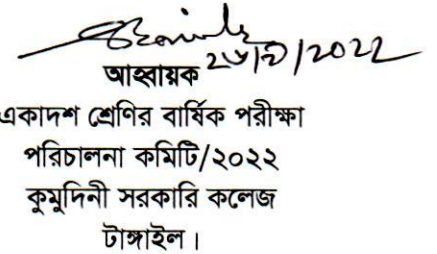 আহ্বায়ক
একাদশ শ্রেণির বার্ষিক পরীক্ষা
পরিচালনা কমিটি/২০২২
কুমুদিনী সরকারি কলেজ
টাঙ্গাইল।